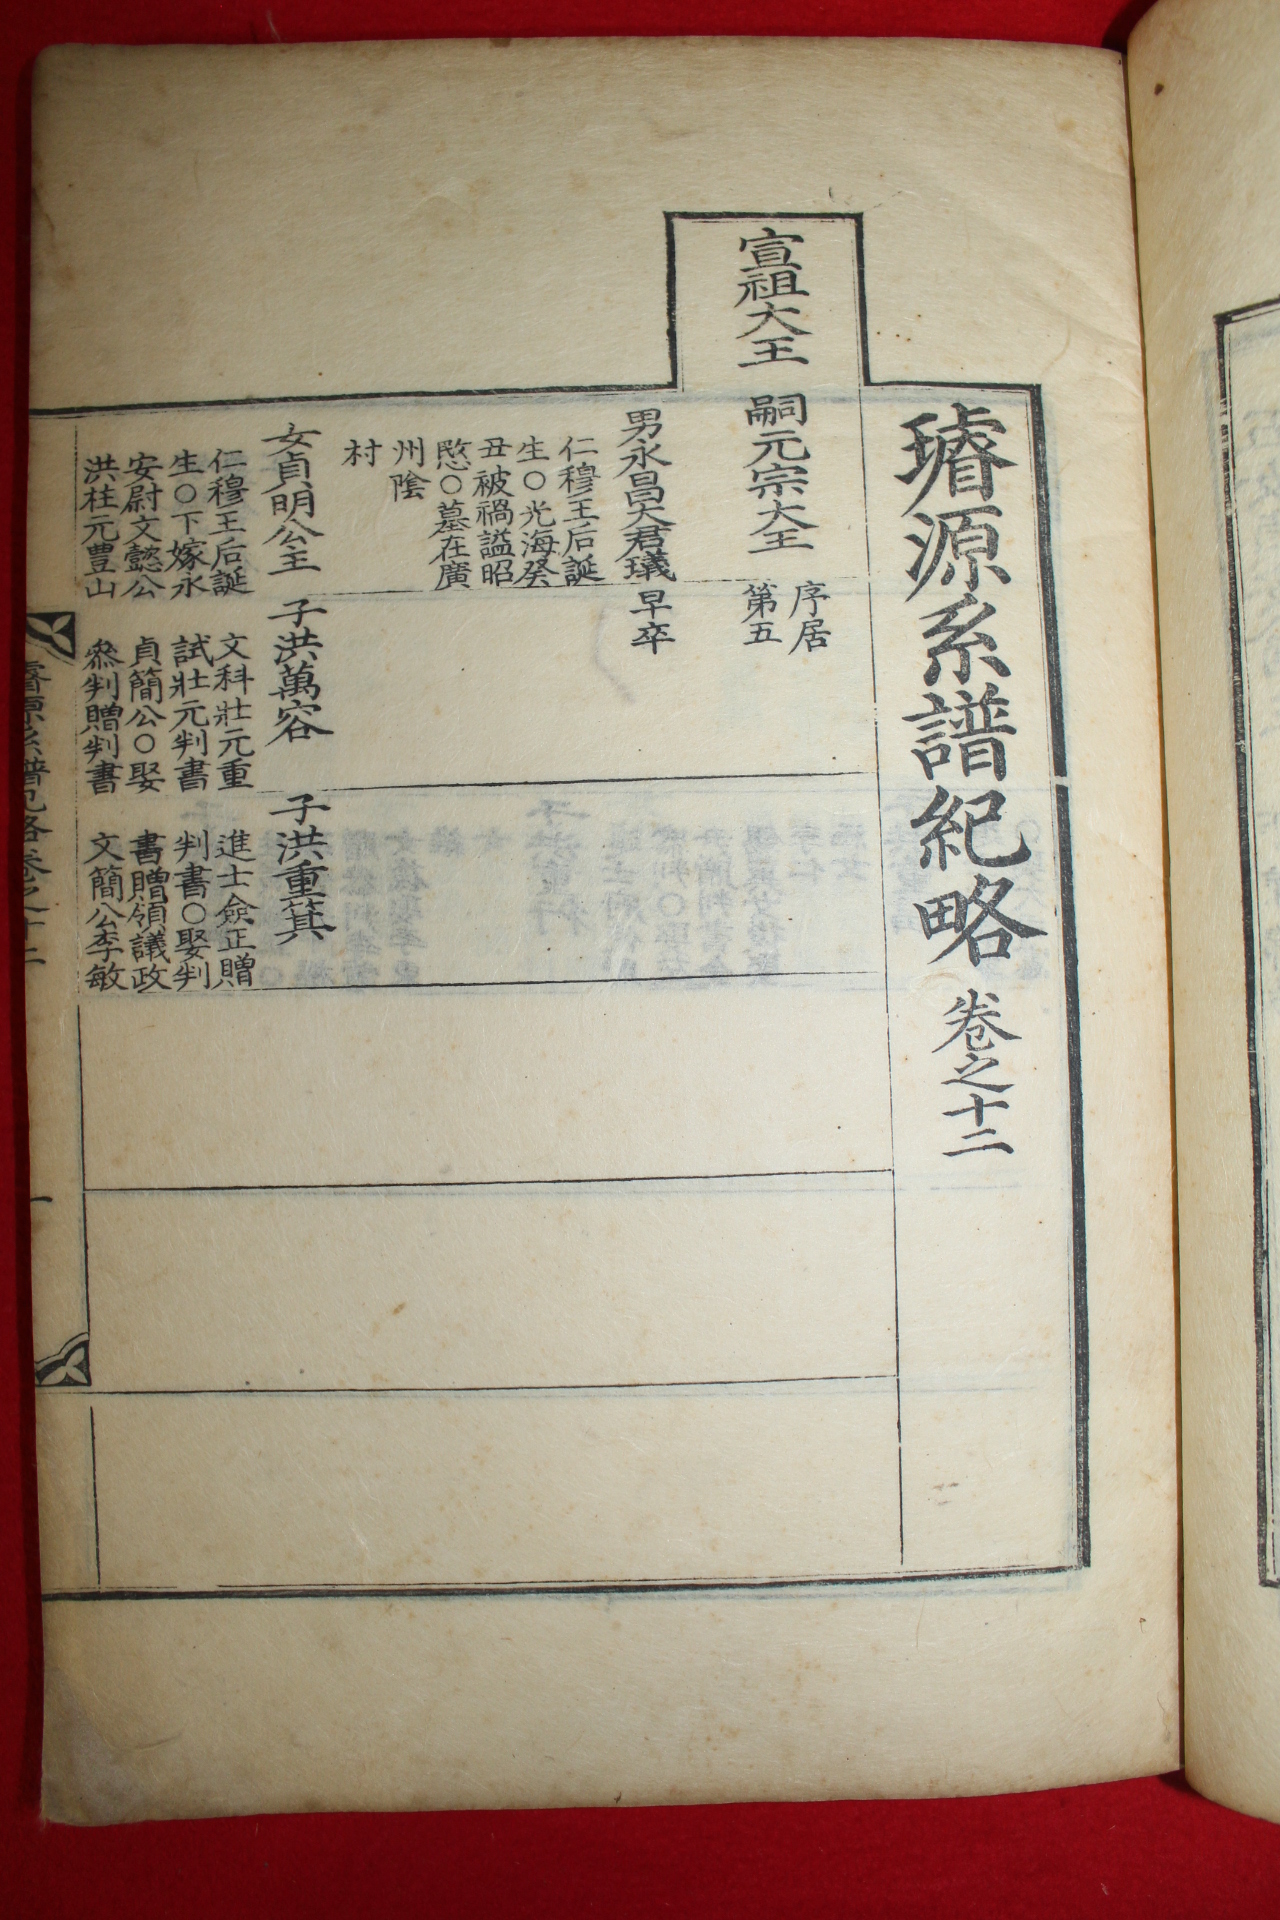 璿源系譜紀略 卷之十二
宣祖大王
嗣元宗大王
序居
第五
男永昌大君㼁
仁穆王后誕
生○光海癸
丑被禍諡昭
愍○墓在廣
州陰
村
早卒
女貞明公主
仁穆王后誕
生○下嫁永
安尉文懿公
洪柱元豊山
子洪萬容
文科壯元重
試壯元判書
貞簡公○娶
叅判贈判書
子洪重箕
進士僉正贈
判書○娶判
書贈領議政
文簡公李敏
璿源系譜紀略卷之十二
一